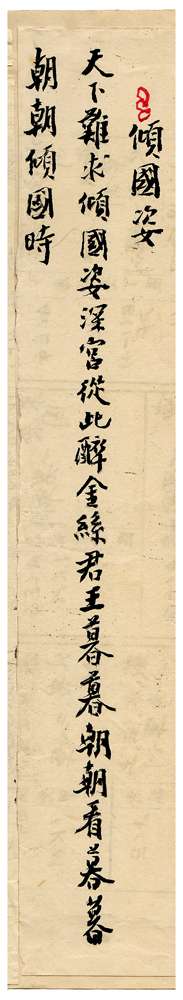 傾國姿
天下難求傾國姿深宮從此醉金絲君王暮暮朝朝看暮暮
朝朝傾國時